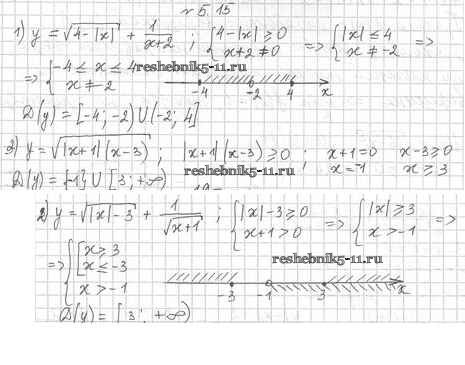 №5.15
1) y = √(4-|x|) + 1/(x+2) ; { 4-|x| ≥ 0 x+2 ≠ 0 => { |x| ≤ 4 x ≠ -2 =>
=> { -4 ≤ x ≤ 4 x ≠ -2
reshebnik5-11.ru
-4 -2 4 x
D(y) = [-4; -2) U (-2; 4]
3) y = √(|x+1|(x-3)) ; |x+1|(x-3) ≥ 0 ; x+1=0 x-3≥0
x=-1 x ≥ 3
reshebnik5-11.ru
D(y) = {-1} U [3; +∞)
2) y = √(|x|-3) + 1/√(x+1) ; { |x|-3 ≥ 0 x+1 > 0 => { |x| ≥ 3 x > -1 =>
=> { [ x ≥ 3 x ≤ -3 x > -1
reshebnik5-11.ru
-3 -1 3 x
D(y) = [3; +∞)